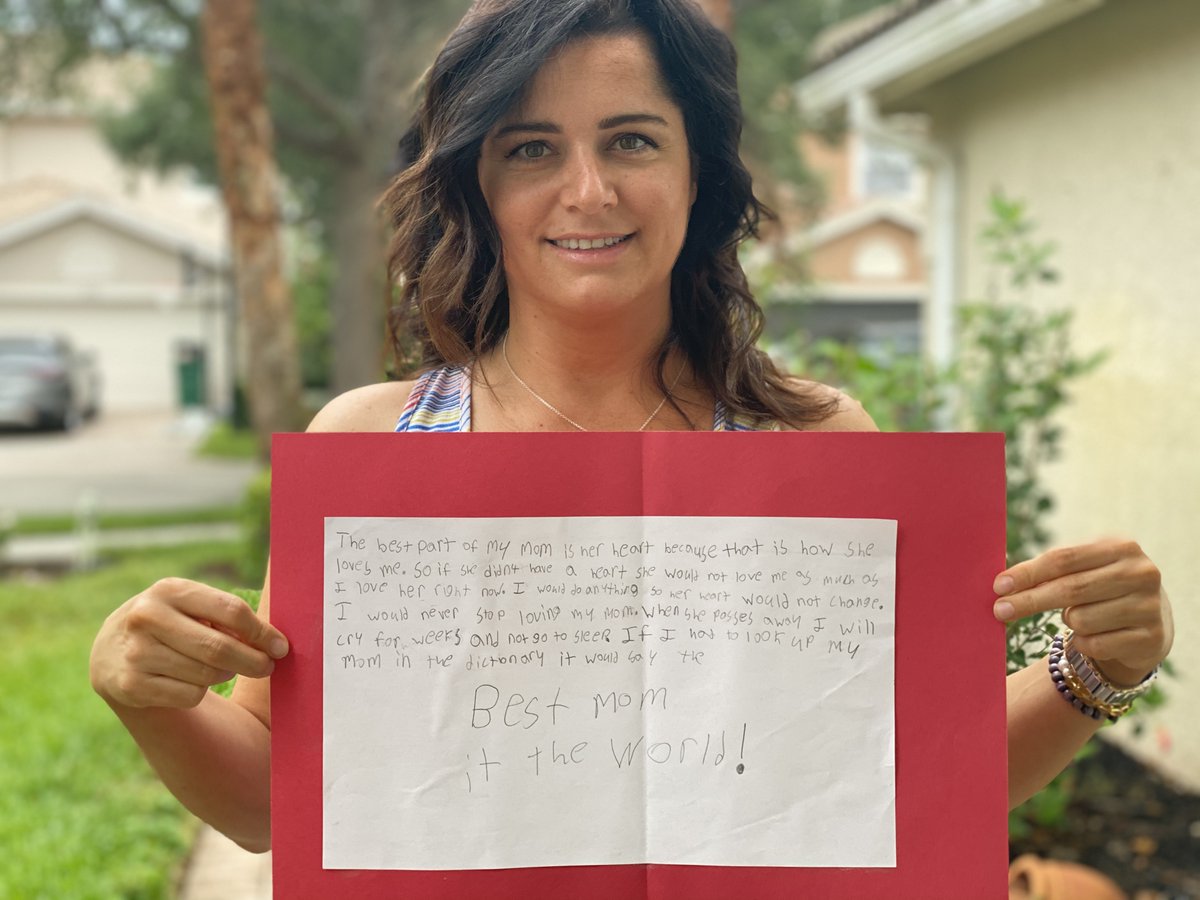 The best part of my mom is her heart because that is how she
loves me. So if she didn't have a heart she would not love me as much as
I love her right now. I would do anything so her heart would not change.
I would never stop loving my mom. When she passes away I will
cry for weeks and not go to sleep If I had to look up my
mom in the dictionary it would say the
Best mom
it the World!